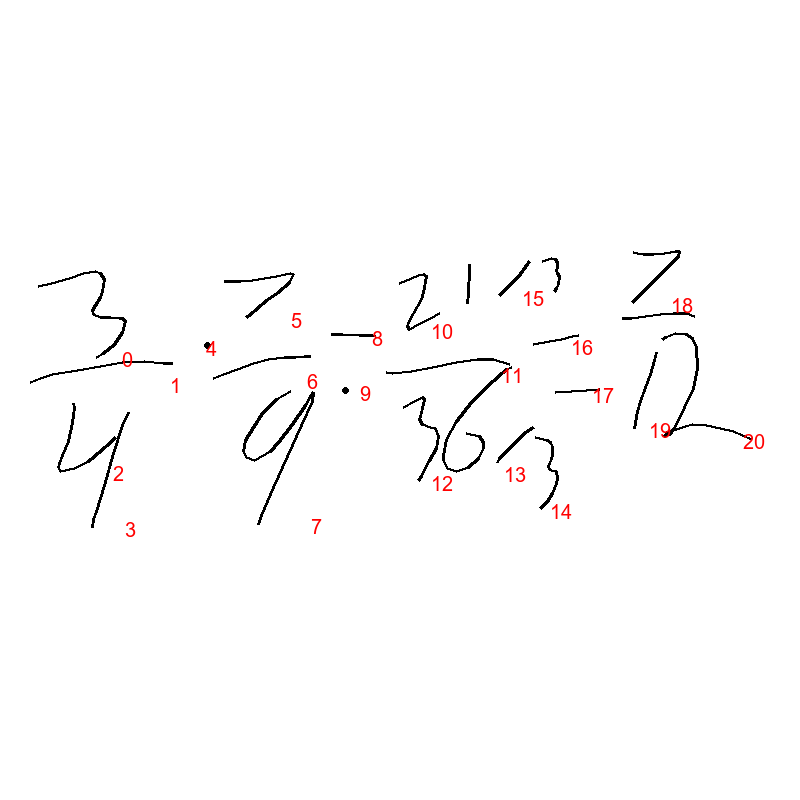 3/4 · 7/9 = 21/3 / 36/3 = 7/12
0
1
2
3
4
5
6
7
8
9
10
11
12
13
14
15
16
17
18
19
20